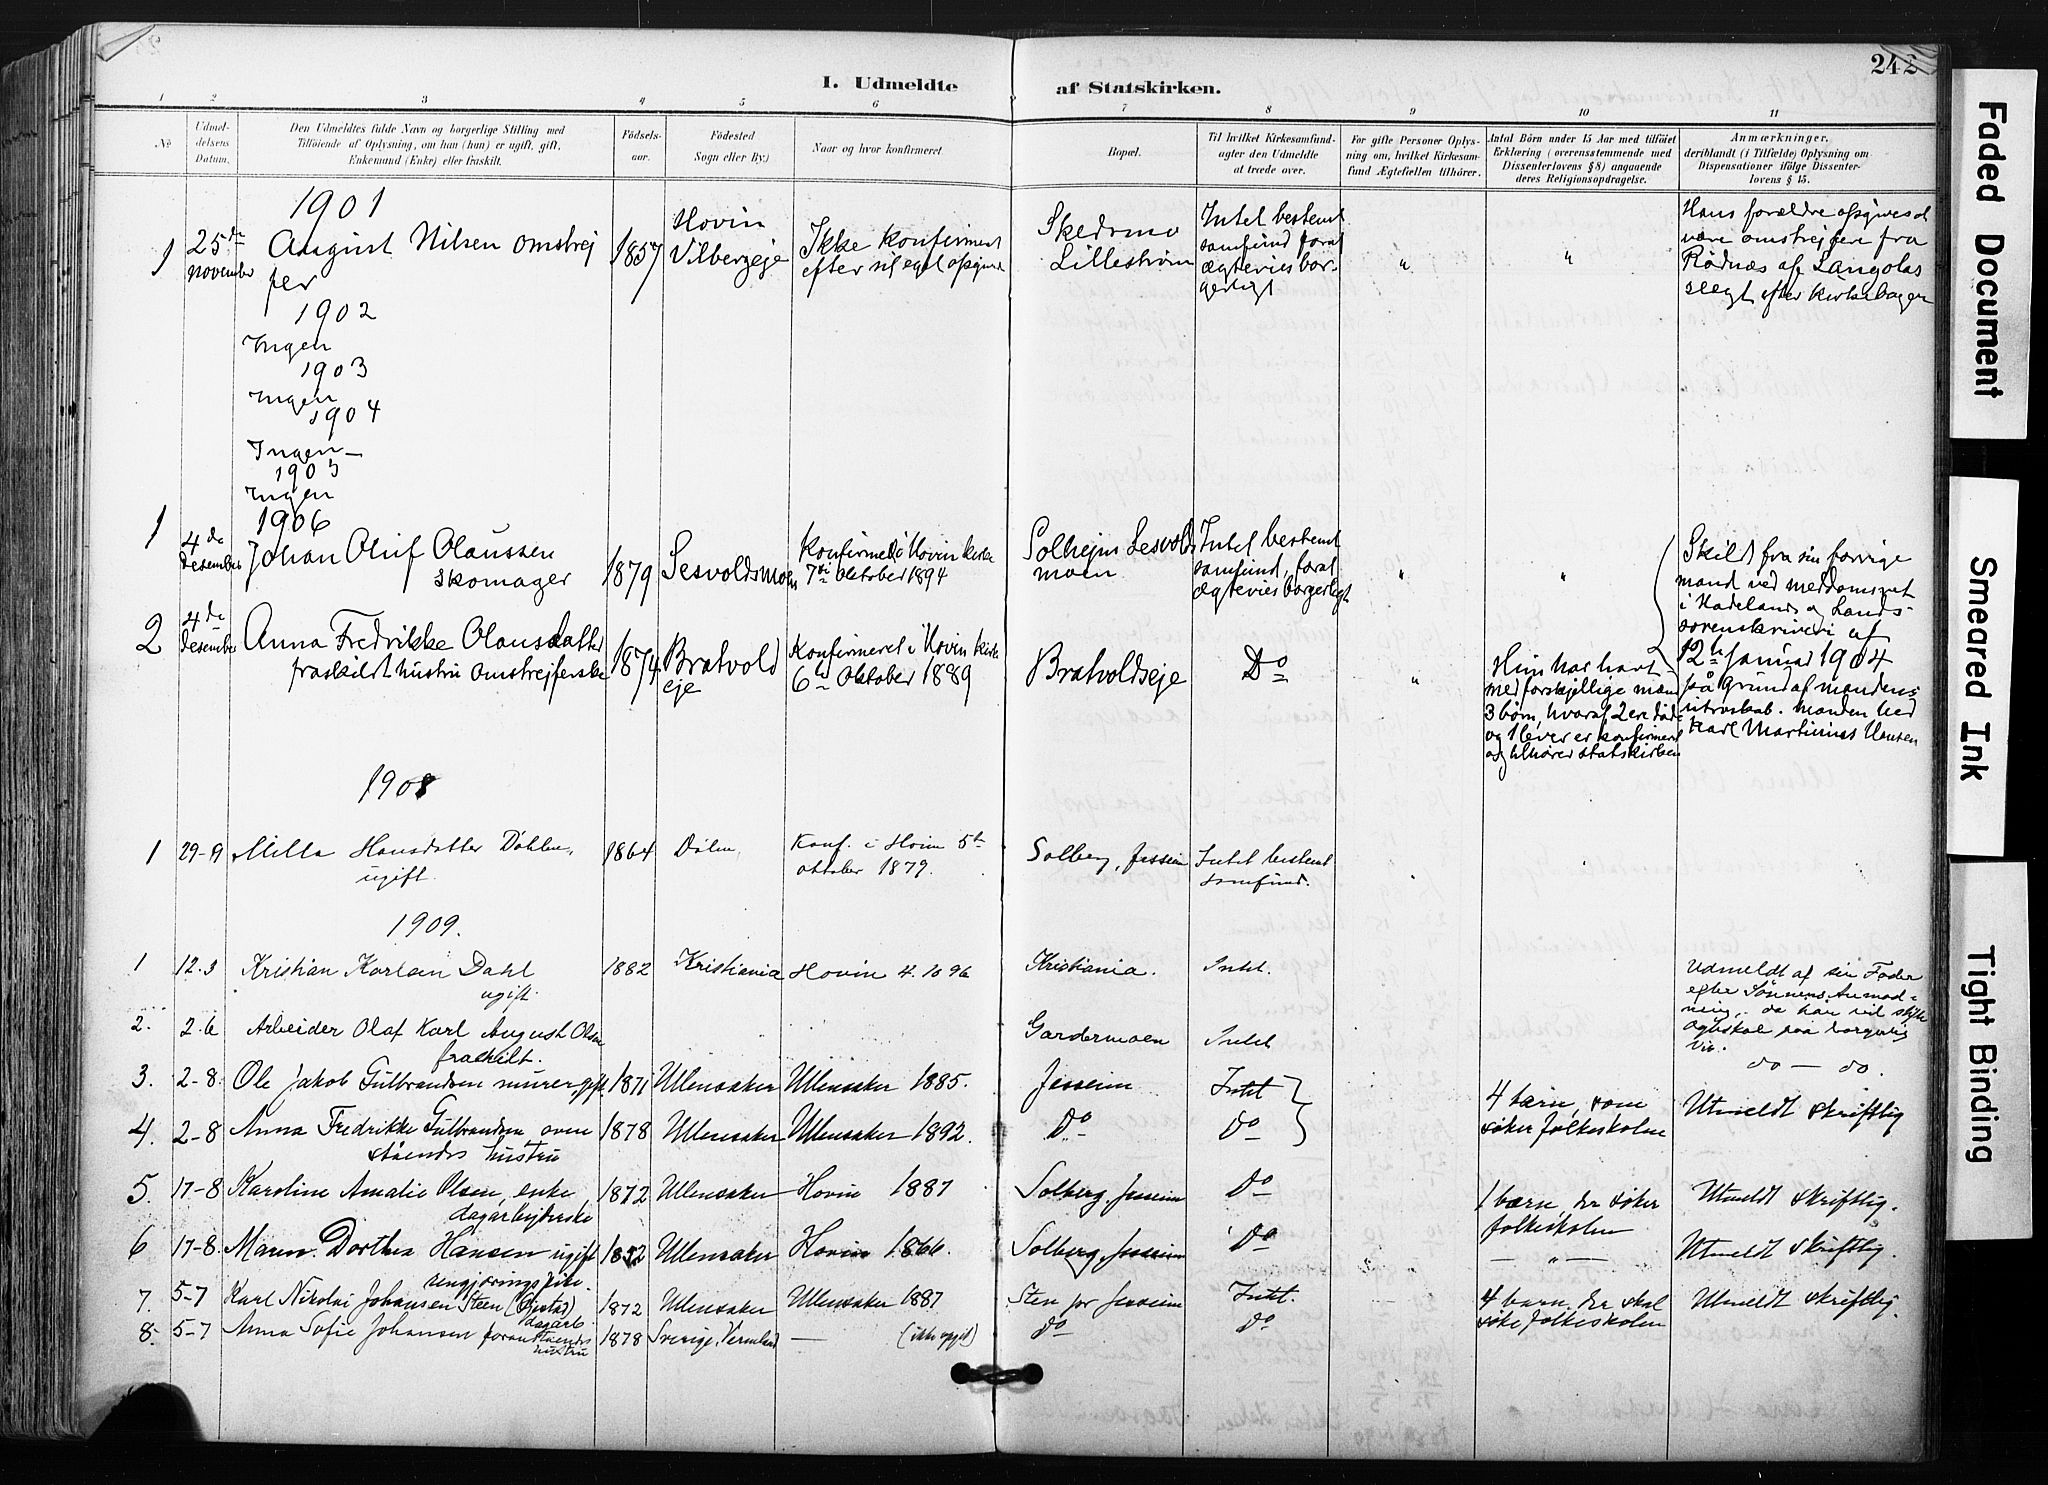 242
I. Udmeldte af Statskirken.
1 2 3 4 5 6 7 8 9 10 11
No
Udmeldelsens Datum.
Den Udmeldtes fulde Navn og borgerlige Stilling med
Tilføiende af Oplysning, om han (hun) er ugift, gift,
Enkemand (Enke) eller fraskilt.
Fødselsaar.
Fødested
Sogn eller By.)
Naar og hvor konfirmeret.
Bopæl.
Til hvilket Kirkesamfund-
agter den Udmeldte
at træde over.
For gifte Personer Oplys-
ning om, hvilket Kirkesam-
fund Ægtefællen tilhører.
Antal Børn under 15 Aar med tilføiet
Erklæring (overensstemmende med
Dissenterlovens § 8) angaaende
deres Religionsopdragelse.
Anmærkninger,
deriblandt (i Tilfælde) Oplysning om
Dispensationer ifølge Dissenter-
lovens § 15.
1901
1 25de november August Nilsen omstrejfer 1857 Hovin Vilbergeje
Ikke konfirmert efter sit eget opgivende
Skedsmo Lillestrøm
Intet bestemt samfund forat ægtevies borgerligt
" "
Hans forældre opgives at
være omstrejfere fra
Rødnæs af Langolas
slegt efter kirkebogen
1902
Ingen
1903
Ingen
1904
Ingen
1905
Ingen
1906
1 4de desember Johan Oluf Olaussen skomager 1879 Sesvoldsmoen
konfirmert i Hovin kirke 7de Oktober 1894
Solhejm Sesvoldsmoen
Intet bestemt samfund, forat ægtevies borgerligt
" "
2 4de desember Anna Fredrikke Olausdatter
fraskildt hustru omstrejferske 1874 Bratvoldeje
Konfirmeret i Hovin kirke 6te Oktober 1889
Bratvoldseje Do "
Hun har havt
med forskjellige mænd
3 børn, hvoraf 2 ere døde
og 1 lever er konfirmert
og tilhører statskirken
Skilt fra sin forrige
mand ved meddomsret
i Hadeland og Lands
sorenskriveri af
12te Januar 1904
på grund af mandens
utroskab. Manden hed
Karl Martinius Hansen
1908
1 29-9 Milla Hansdatter Døhlen, ugift. 1864 Dølen, Konf. i Hovin 5te oktober 1879. Solberg, Jessein Intet bestemt samfund.
1909.
1 12.3 Kristian Karlsen Dahl ugift. 1882 Kristiania Hovin 4.10 96 Kristiania. Intet.
Udmeldt af sin Fader
efter Sønnens Anmod-
ning,
2. 2.6 Arbeider Olaf Karl August Olsen fraskilt. Gardermoen Intet
do — do.
3. 2-8. Ole Jakob Gulbrandsen murer, gift 1871 Ullensaker Ullensaker 1885. Jesseim Intet
4. 2-8 Anna Fredrikke Gulbrandsen ovenståendes hustru 1878 Ullensaker Ullensaker 1892. Do Do
4 bærn, som søker folkeskolen Utmeldt skriftlig
5. 17-8 Karoline Amalie Olsen, enke, dagarbejderske 1872 Ullensaker Hovin 1887 Solberg, Jesseim Do
1 bærn, der søker folkeskolen Utmeldt skriftlig.
6 17-8. Maren Dorthea Hansen ugift rengjøringspike 1852 Ullensaker Hovin 1866. Solberg, Jesseim Do — " — Utmeldt skriftlig.
7. 5-7 Karl Nikolai Johansen Steen (Gjestad) dagarb. 1872 Ullensaker Ullensaker 1887 Sten pr Jesseim Intet.
4 barn, der skal søke folkeskolen Utmeldt skriftlig.
8. 5-7 Anna Sofie Johansen foranstaaendes hustru 1878 Sverige, Vermland — (ikke opgit) Do Do
Faded Document
Smeared Ink
Tight Binding